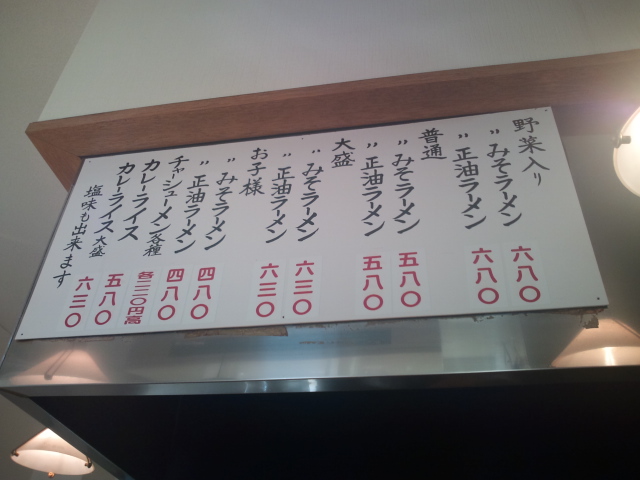 野菜入り
〃みそラーメン 六八〇
〃正油ラーメン 六八〇
普通
〃みそラーメン 五八〇
〃正油ラーメン 五八〇
大盛
〃みそラーメン 六三〇
〃正油ラーメン 六三〇
お子様
〃みそラーメン 四八〇
〃正油ラーメン 四八〇
チャーシューメン各種 各二三〇円高
カレーライス 五八〇
カレーライス大盛 六三〇
塩味も出来ます